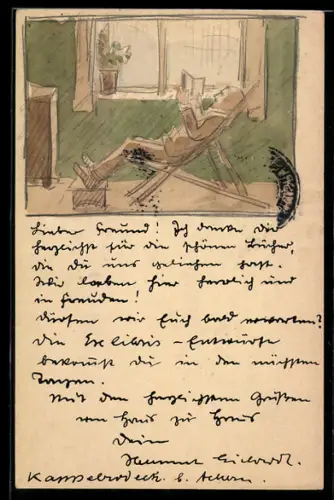 Lieber Freund! Ich danke Dir
herzlichst für die schönen Bücher,
die Du uns geliehen hast.
Wir leben hier herrlich und
in Freuden!
Dürfen wir Euch bald erwarten?
Die Exlibris-Entwürfe
bekommst Du in den nächsten
Tagen.
Mit den herzlichsten Grüßen
von Haus zu Haus
Dein
Helmut Eichrodt.
Kappelrodeck b. Achern.